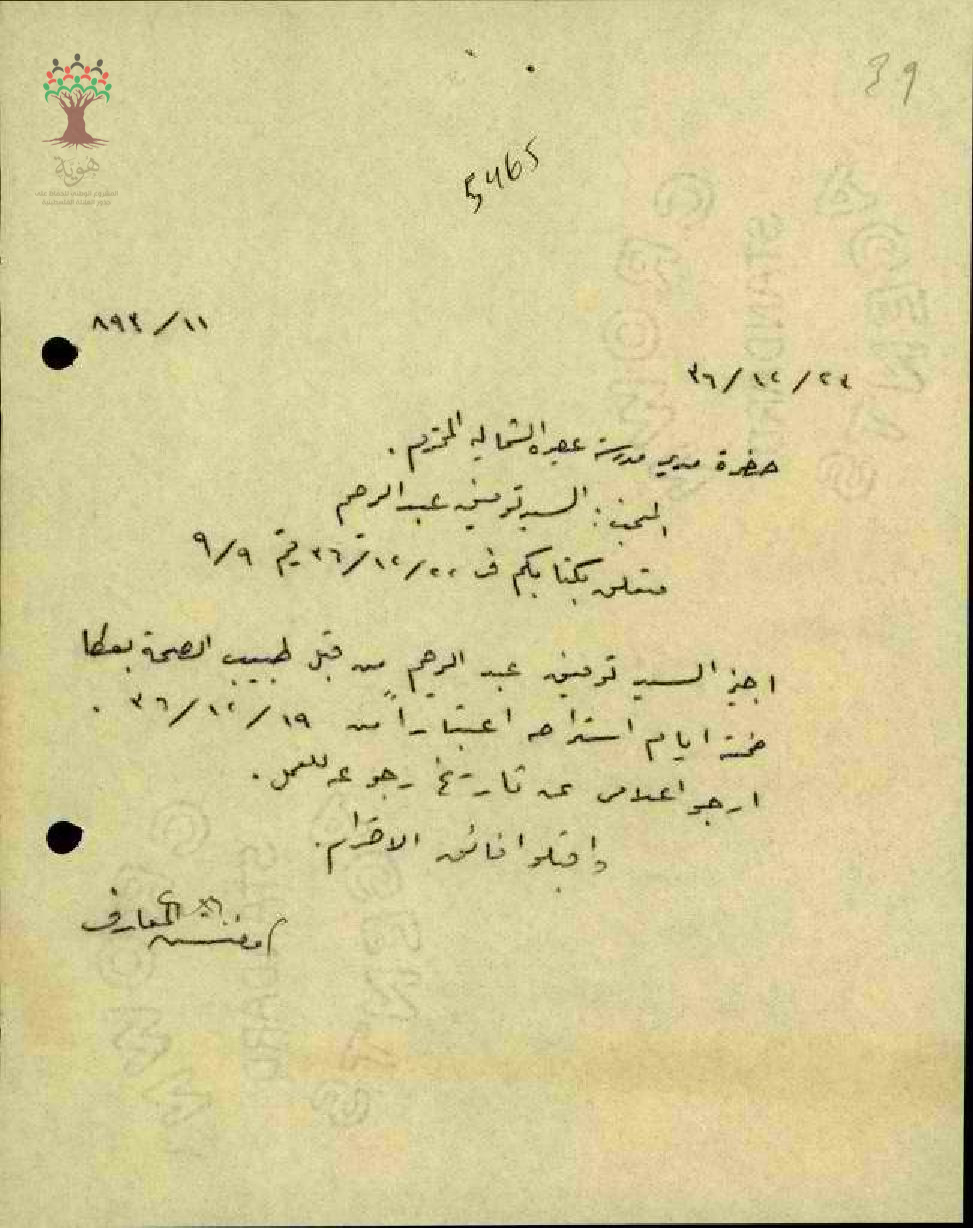 39
5465
هوية
المشروع الوطني للحفاظ على
جذور العائلة الفلسطينية
٨٩٣/١١
٣٦/١٢/٢٣
حضرة مدير مدرسة عصيره الشماليه المحترم .
السيد توفيق عبد الرحيم
متعلق بكتابكم في ٣٦/١٢/٢٢ رقم ٩/٩
اجيز السيد توفيق عبد الرحيم من قبل طبيب الصحة بعكا
خمسة ايام استراحه اعتباراً من ٣٦/١٢/١٩ .
ارجو اعلامي عن تاريخ رجوعه للعمل .
واقبلوا فائق الاحترام .
مفتش المعارف
STANDARD